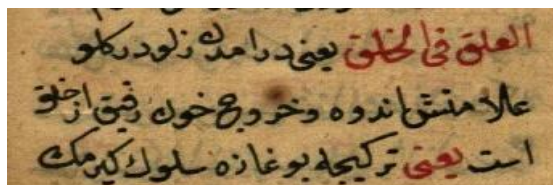 العلق فی الحلق یعنی درآمدن زلو در کلو
علامتش اندوه و خروج خون رقیق از حلق
است یعنی ترکیجه بوغازه سلوك کیرمك